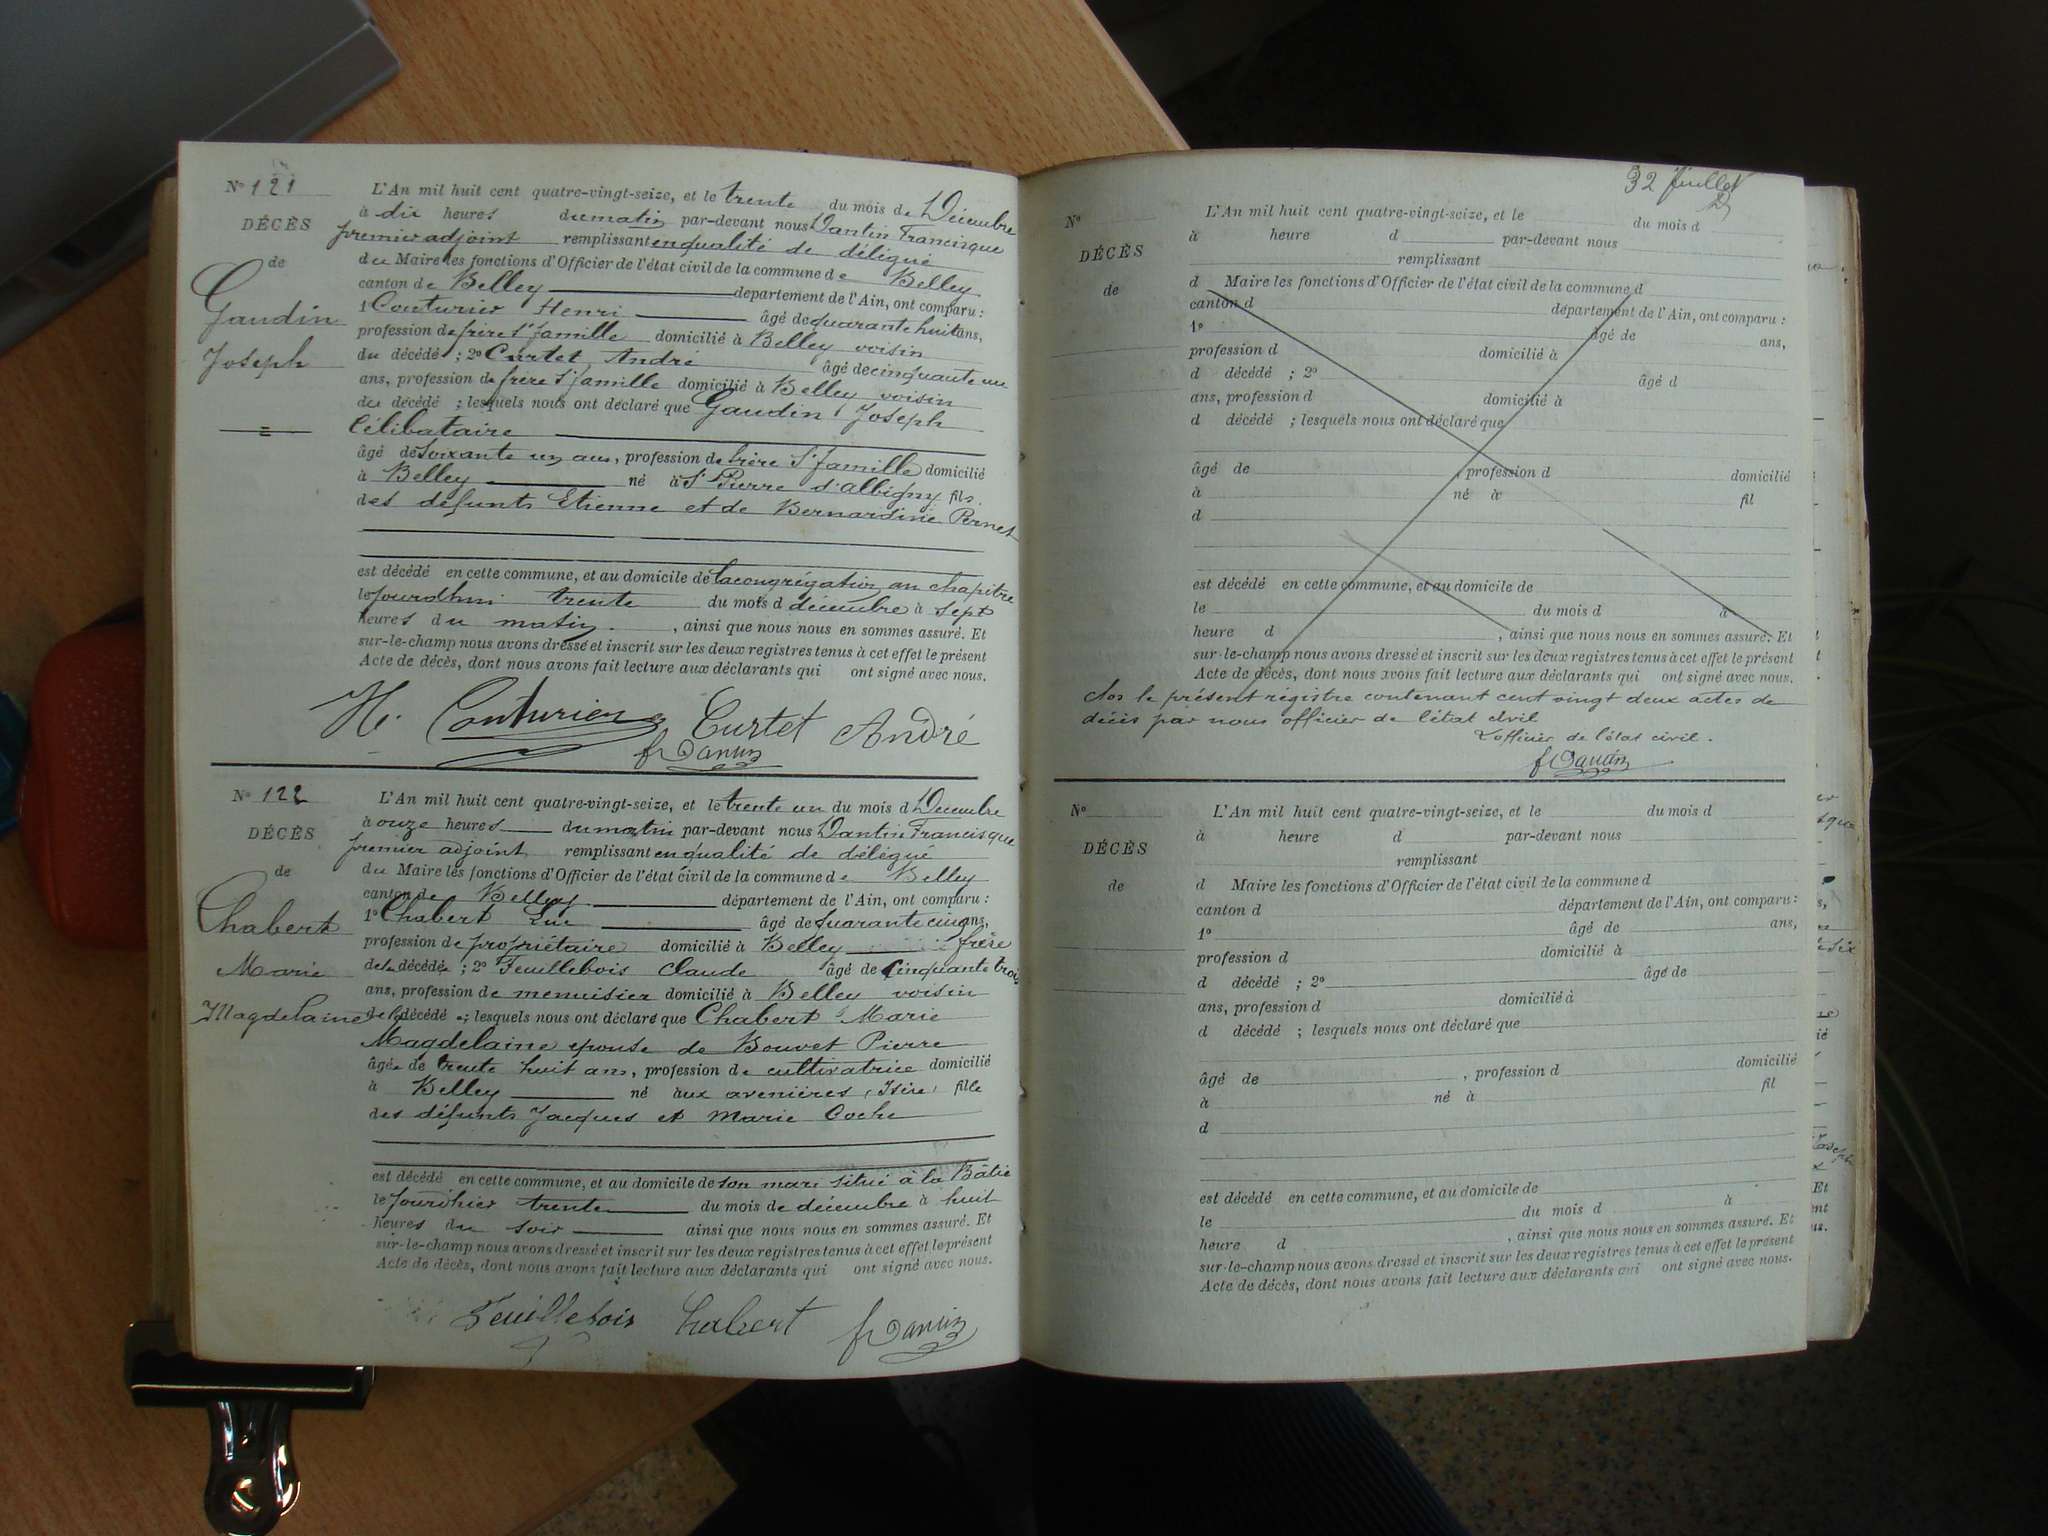 N° 121
DÉCÈS
de
Gaudin
Joseph
L'An mil huit cent quatre-vingt-seize, et le trente du mois de Décembre
à dix heures du matin par-devant nous Dantin Francisque
premier adjoint remplissant en qualité de délégué
du Maire les fonctions d'Officier de l'état civil de la commune de Belley
canton de Belley département de l'Ain, ont comparu :
1° Couturier Henri âgé de quarante huit ans,
profession de frère Ste famille domicilié à Belley voisin
du décédé ; 2° Curtet André âgé de cinquante un
ans, profession de frère Ste famille domicilié à Belley voisin
du décédé ; lesquels nous ont déclaré que Gaudin Joseph
Célibataire
âgé de Soixante un ans, profession de frère Ste famille domicilié
à Belley né à St Pierre d'Albigny fils
des défunts Etienne et de Bernardine Pernet
est décédé en cette commune, et au domicile de la congrégation au chapitre
le jourdhui trente du mois d décembre à sept
heures du matin , ainsi que nous nous en sommes assuré. Et
sur-le-champ nous avons dressé et inscrit sur les deux registres tenus à cet effet le présent
Acte de décès, dont nous avons fait lecture aux déclarants qui ont signé avec nous.
H. Couturier Curtet André
fr Dantin
N° 122
DÉCÈS
de
Chabert
Marie
Magdelaine
L'An mil huit cent quatre-vingt-seize, et le trente un du mois d Décembre
à onze heures du matin par-devant nous Dantin Francisque
premier adjoint remplissant en qualité de délégué
du Maire les fonctions d'Officier de l'état civil de la commune de Belley
canton de Belley département de l'Ain, ont comparu :
1° Chabert Luc âgé de quarante cinq ans,
profession de propriétaire domicilié à Belley frère
de la décédée ; 2° Feuillebois Claude âgé de Cinquante trois
ans, profession de menuisier domicilié à Belley voisin
de la décédée ; lesquels nous ont déclaré que Chabert Marie
Magdelaine epouse de Bouvet Pierre
âgée de trente huit ans, profession de cultivatrice domicilié
à Belley né aux avenières (Isère) fille
des défunts Jacques et Marie Coche
est décédé en cette commune, et au domicile de son mari situé à la Bâtie
le jourdhier trente du mois de décembre à huit
heures du soir ainsi que nous nous en sommes assuré. Et
sur-le-champ nous avons dressé et inscrit sur les deux registres tenus à cet effet le présent
Acte de décès, dont nous avons fait lecture aux déclarants qui ont signé avec nous.
Feuillebois Chabert fr Dantin
32 feuillet
N°
DÉCÈS
de
L'An mil huit cent quatre-vingt-seize, et le du mois d
à heure d par-devant nous
remplissant
d Maire les fonctions d'Officier de l'état civil de la commune d
canton d département de l'Ain, ont comparu :
1° âgé de ans,
profession d domicilié à
d décédé ; 2° âgé d
ans, profession d domicilié à
d décédé ; lesquels nous ont déclaré que
âgé de , profession d domicilié
à né à fil
d
est décédé en cette commune, et au domicile de
le du mois d à
heure d , ainsi que nous nous en sommes assuré. Et
sur-le-champ nous avons dressé et inscrit sur les deux registres tenus à cet effet le présent
Acte de décès, dont nous avons fait lecture aux déclarants qui ont signé avec nous.
Clos le présent régistre contenant cent vingt deux actes de
décès par nous officier de l'état civil
L'officier de l'état civil.
fr Dantin
N°
DÉCÈS
de
L'An mil huit cent quatre-vingt-seize, et le du mois d
à heure d par-devant nous
remplissant
d Maire les fonctions d'Officier de l'état civil de la commune d
canton d département de l'Ain, ont comparu :
1° âgé de ans,
profession d domicilié à
d décédé ; 2° âgé de
ans, profession d domicilié à
d décédé ; lesquels nous ont déclaré que
âgé de , profession d domicilié
à né à fil
d
est décédé en cette commune, et au domicile de
le du mois d à
heure d , ainsi que nous nous en sommes assuré. Et
sur-le-champ nous avons dressé et inscrit sur les deux registres tenus à cet effet le présent
Acte de décès, dont nous avons fait lecture aux déclarants qui ont signé avec nous.